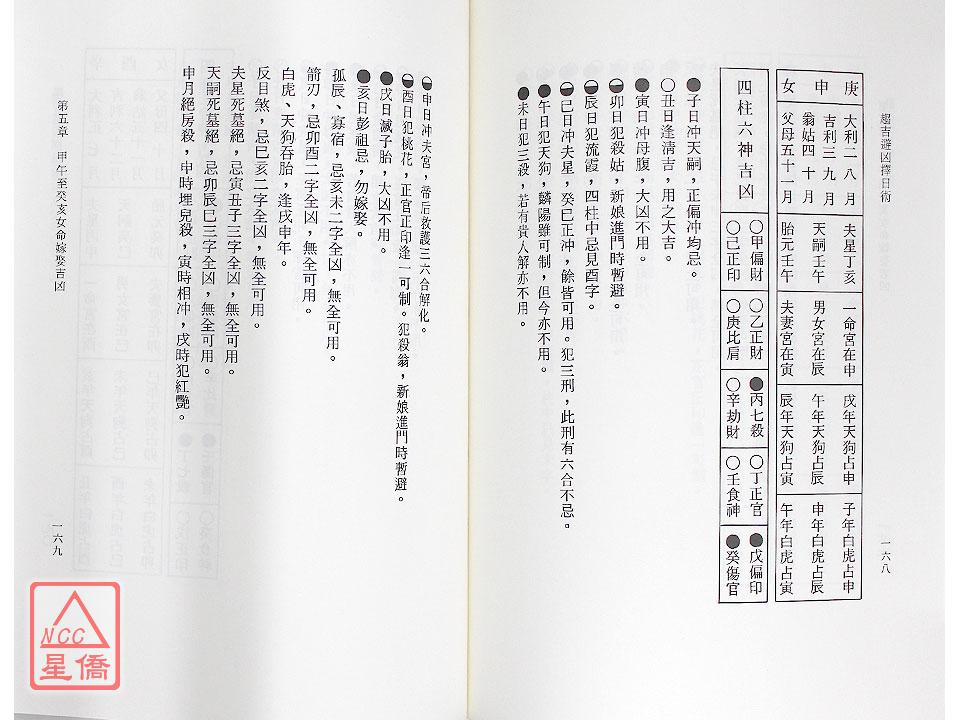 趨吉避凶擇日術
一六八
庚申女
大利二八月
吉利三九月
翁姑四十月
父母五十一月
夫星丁亥
天嗣壬午
胎元壬午
一命宮在申
男女宮在辰
夫妻宮在寅
戌年天狗占申
午年天狗占辰
辰年天狗占寅
子年白虎占申
申年白虎占辰
午年白虎占寅
四柱六神吉凶
○甲偏財
○己正印
○乙正財
○庚比肩
●丙七殺
○辛劫財
○丁正官
○壬食神
●戊偏印
●癸傷官
●子日冲天嗣,正偏冲均忌。
○丑日逢清吉,用之大吉。
●寅日冲母腹,大凶不用。
◒卯日犯殺姑,新娘進門時暫避。
◒辰日犯流霞,四柱中忌見酉字。
◒巳日冲夫星,癸巳正冲,餘皆可用。犯三刑,此刑有六合不忌。
●午日犯天狗,麟陽雖可制,但今亦不用。
●未日犯三殺,若有貴人解亦不用。
◒申日冲夫宮,帝后救護三六合解化。
◒酉日犯桃花,正官正印逢一可制。犯殺翁,新娘進門時暫避。
●戌日滅子胎,大凶不用。
●亥日彭祖忌,勿嫁娶。
孤辰、寡宿,忌亥未二字全凶,無全可用。
箭刃,忌卯酉二字全凶,無全可用
白虎、天狗吞胎,逢戌申年。
反目煞,忌巳亥二字全凶,無全可用。
夫星死墓絕,忌寅丑子三字全凶,無全可用。
天嗣死墓絕,忌卯辰巳三字全凶,無全可用。
申月絕房殺,申時埋兒殺,寅時相冲,戌時犯紅艷。
第五章 甲午至癸亥女命嫁娶吉凶
一六九
NCC
星僑